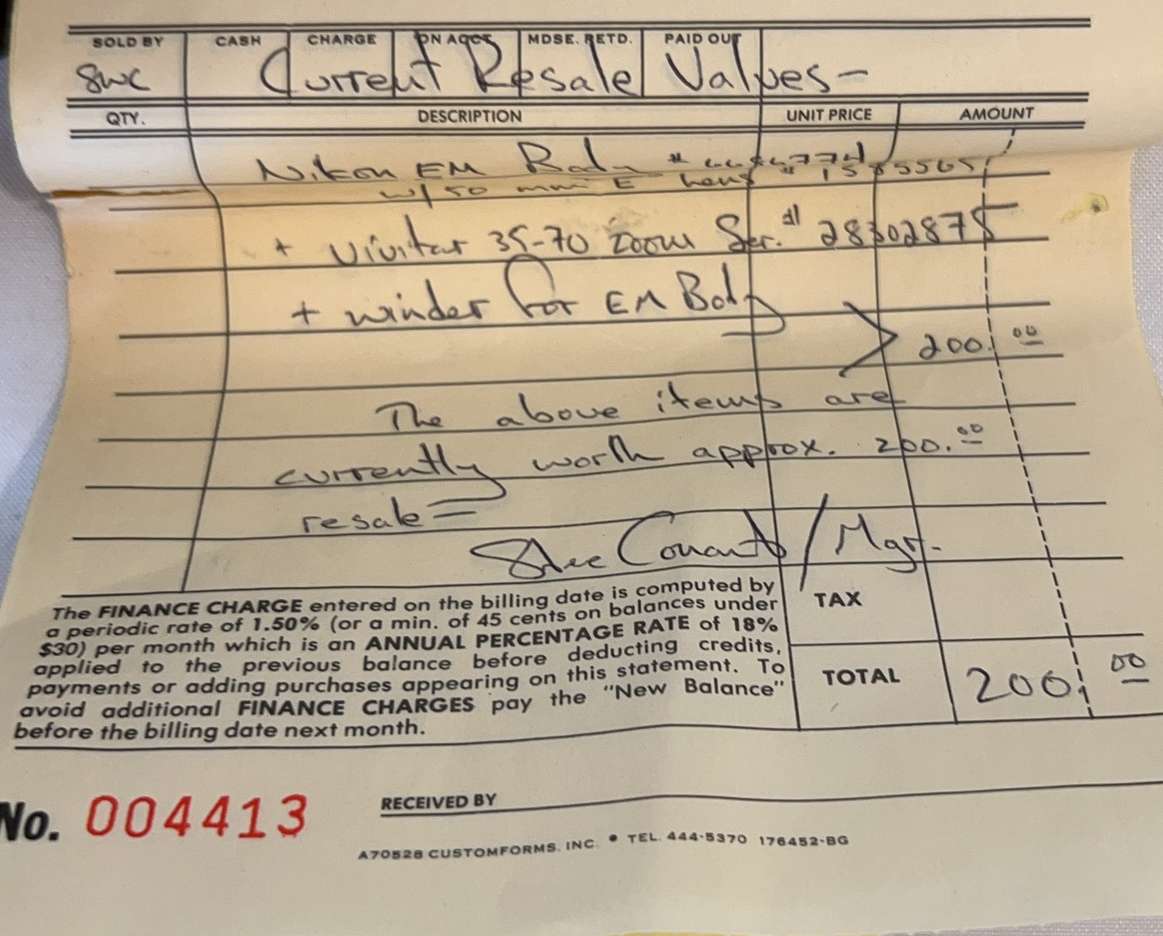 SOLD BY CASH CHARGE ON ACCT. MDSE. RETD. PAID OUT
SWC Current Resale Values-
QTY. DESCRIPTION UNIT PRICE AMOUNT
Nikon EM Body #
w/ 50 mm E Lens #
+ Vivitar 35-70 Zoom Ser. # 28302875
+ winder for EM Body
200.00
The above items are
currently worth approx. 200.00
resale
Conant / Mgr.
The FINANCE CHARGE entered on the billing date is computed by
a periodic rate of 1.50% (or a min. of 45 cents on balances under
$30) per month which is an ANNUAL PERCENTAGE RATE of 18%
applied to the previous balance before deducting credits,
payments or adding purchases appearing on this statement. To
avoid additional FINANCE CHARGES pay the "New Balance"
before the billing date next month.
TAX
TOTAL 200.00
No. 004413
RECEIVED BY
A70528 CUSTOMFORMS, INC. • TEL. 444-5370 176452-BG